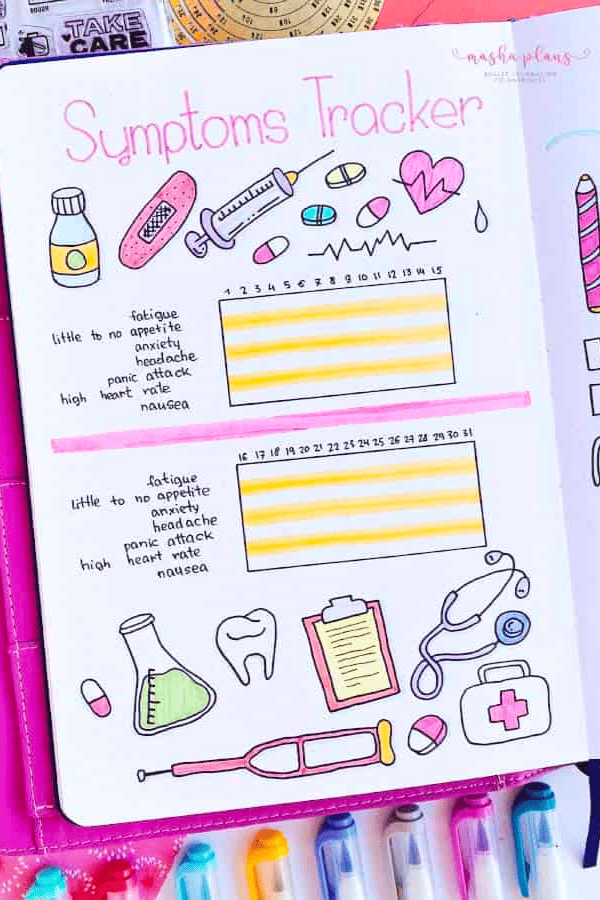 TAKE
CARE
masha plans
Symptoms Tracker
1 2 3 4 5 6 7 8 9 10 11 12 13 14 15
fatigue
little to no appetite
anxiety
headache
panic attack
high heart rate
nausea
16 17 18 19 20 21 22 23 24 25 26 27 28 29 30 31
fatigue
little to no appetite
anxiety
headache
panic attack
high heart rate
nausea